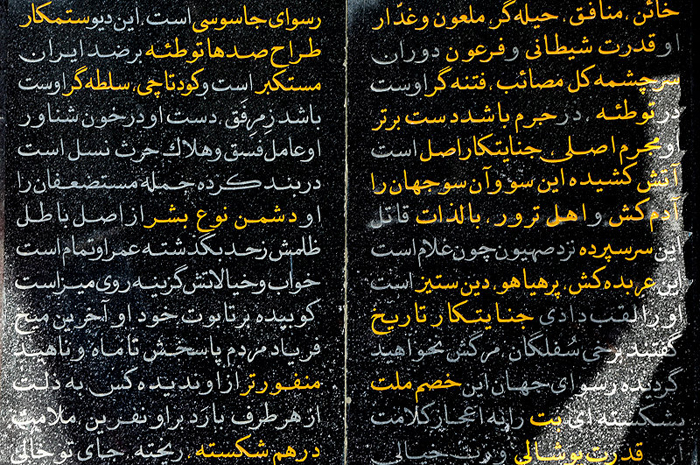 خائن، منافق، حیله‌گر، ملعون و غدّار
رسوای جاسوسی است، این دیو ستمکار
او قدرت شیطانی و فرعون دوران
طراح صدها توطئه بر ضد ایران
سرچشمه کل مصائب، فتنه‌گر اوست
مستکبر است و کودتاچی، سلطه‌گر اوست
در توطئه، در جرم باشد دست برتر
باشد ز مِرفَق، دست او در خون شناور
او مجرم اصلی جنایتکار اصل است
او عامل فسق و هلاک حرث نسل است
آتش کشیده این سو و آن سو جهان را
در بند کرده جمله مستضعفان را
آدم‌کش و اهل ترور، بالذات قاتل
او دشمن نوع بشر از اصل باطل
این سرسپرده نزد صهیون چون غلام است
ظلمش ز حد بگذشته عمر او تمام است
این عربده‌کش، پرهیاهو، دین ستیز است
خواب و خیالاتش گزینه روی میز است
او را لقب دادی جنایتکار تاریخ
کوبیده بر تابوت خود او آخرین میخ
گفتند برخی سُفلگان، مرگش نخواهید
فریاد مردم پاسخش تا ماه و ناهید
گردیده رسوای جهان این خصم ملت
منفورتر از او ندیده کس به ذلت
بشکسته‌ای بت را به اعجاز کلامت
از هر طرف بارَد بر او نفرین، ملامت
قدرت پوشالی و بت خیالی
درهم شکسته، ریخته، جای تو خالی